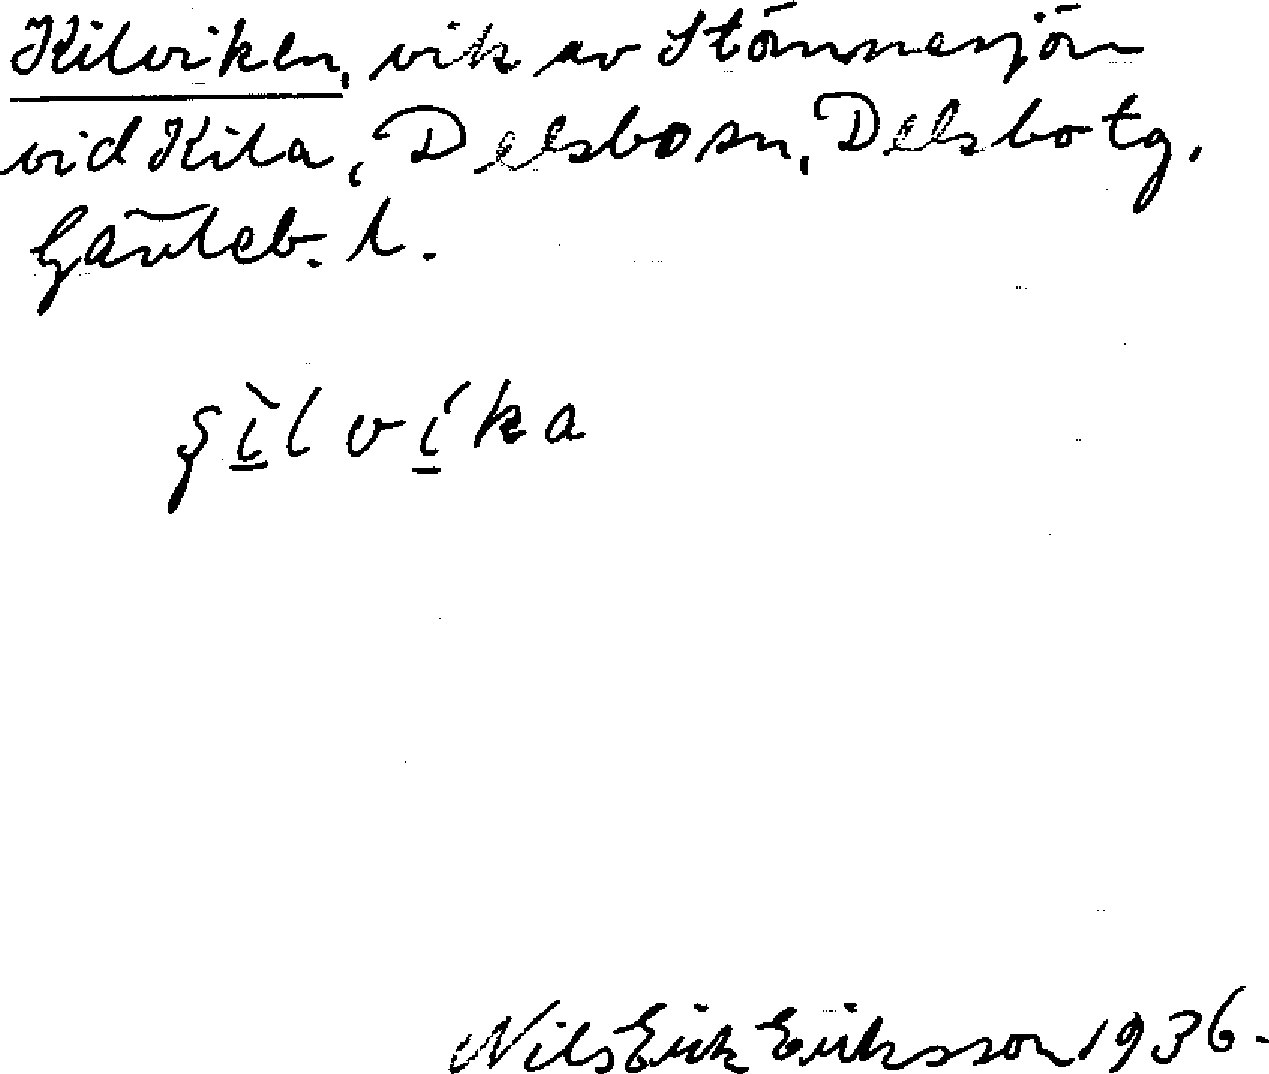 Kilviken, vik av Stömnesjön
vid Kila, Delsbo sn, Delsbo tg.
Gävleb. l.
ş<u>ì</u>l v<u>í</u>ka
Nils Erik Eriksson 1936.